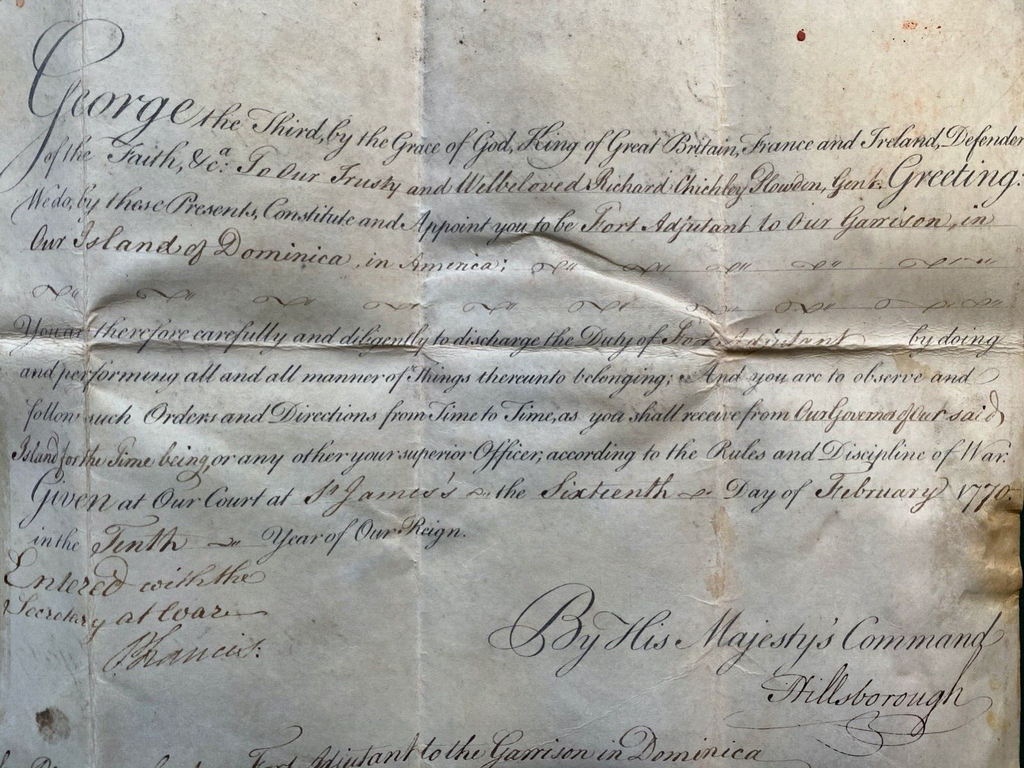 George the Third, by the Grace of God, King of Great Britain, France and Ireland, Defender
of the Faith, &c.a To Our Trusty and Welbeloved Richard Chichley Plowden, Gent. Greeting:
We do, by these Presents, Constitute and Appoint you to be Fort Adjutant to Our Garrison, in
Our Island of Dominica, in America;
You are therefore carefully and diligently to discharge the Duty of Fort Adjutant by doing
and performing all and all manner of Things thereunto belonging; And you are to observe and
follow such Orders and Directions from Time to Time, as you shall receive from Our Governor of Our said
Island for the Time being, or any other your superior Officer, according to the Rules and Discipline of War.
Given at Our Court at St. James's the Sixteenth Day of February 1770.
in the Tenth Year of Our Reign.
Entered with the
Secretary at War
P Francis.
By His Majesty's Command
Hillsborough
Fort Adjutant to the Garrison in Dominica